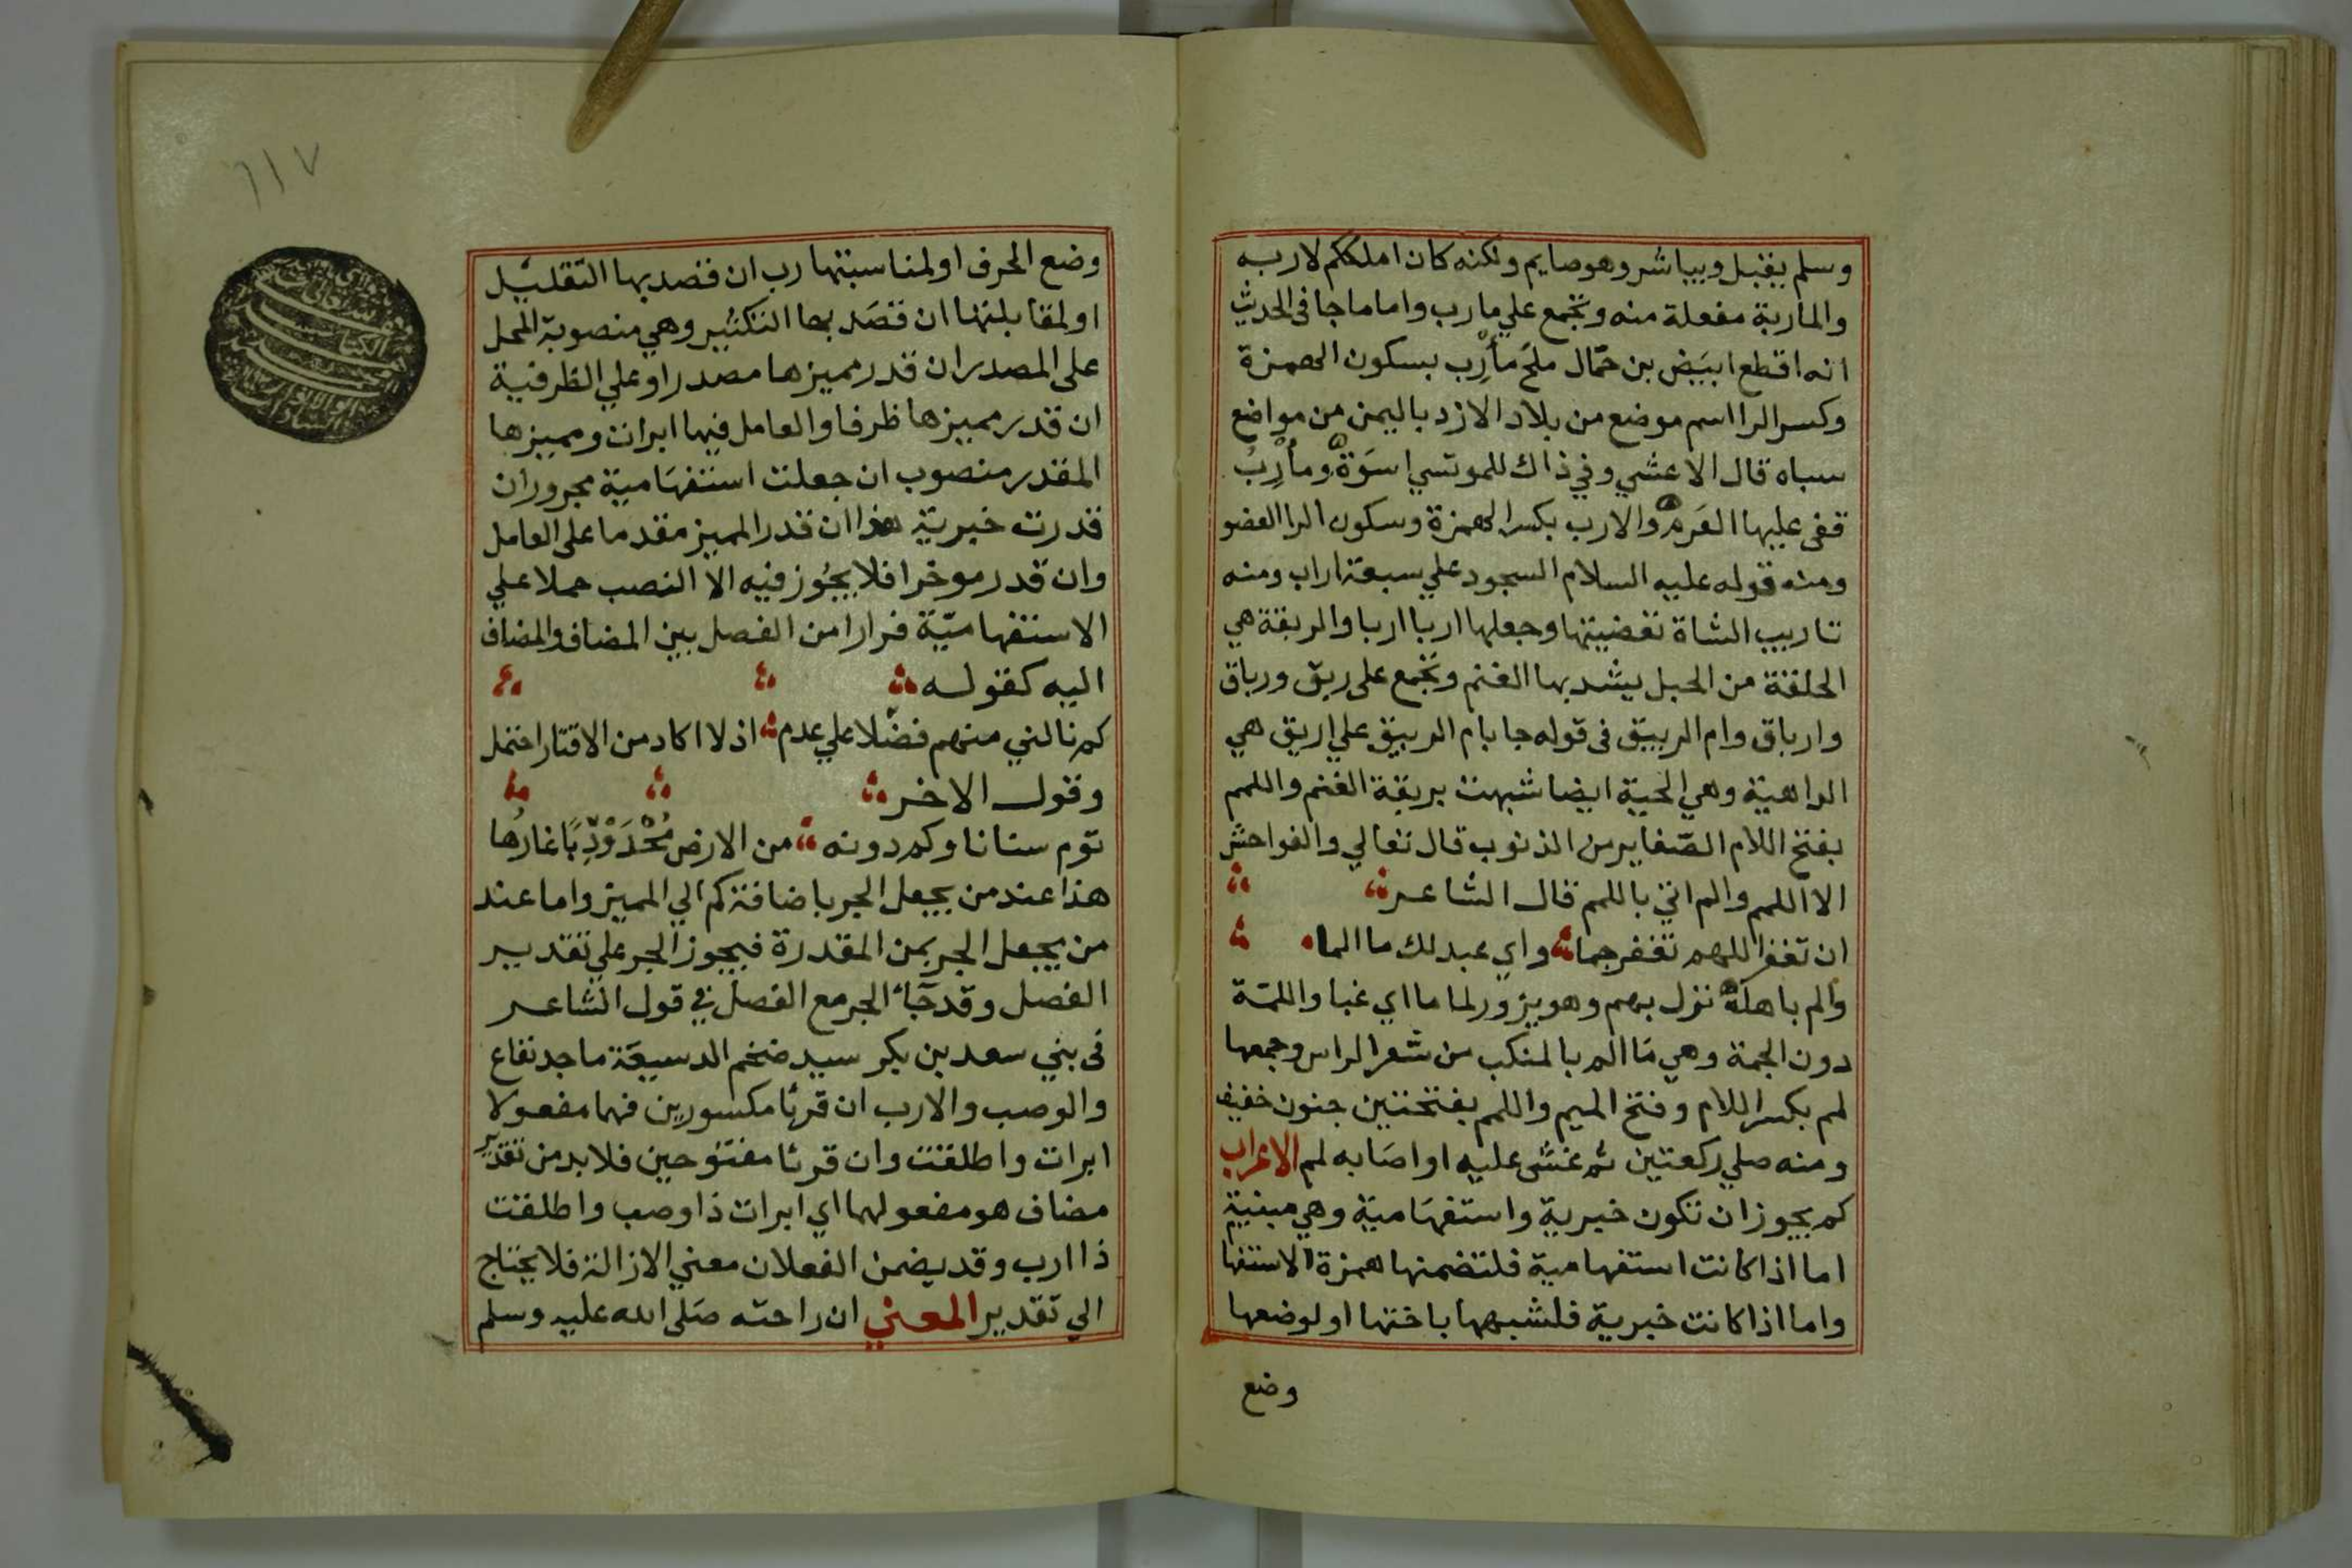 وسلم يقبل ويباشر وهو صايم ولكنه كان املككم لاربه
والماربة مفعلة منه وتجمع علي مارب واما ما جا فى الحديث
انه اقطع ابيَض بن حمّال ملحَ مأرِب بسكون الهمزة
وكسر الرا اسم موضع من بلاد الازد باليمن من مواضع
سباه قال الاعشي وفي ذاك للموتسي اسوَة ومأرِبُ
قفى عليها العَرِم والارب بكسر الهمزة وسكون الرا العضو
ومنه قوله عليه السلام السجود علي سبعة اراب ومنه
تاريب الشاة تعضيتها وجعلها اربا اربا والربقة هي
الحلقة من الحبل يشد بها الغنم وتجمع على ربق ورباق
وارباق وام الربيق فى قوله جا بام الربيق علي اريق هي
الداهية وهي الحية ايضا شبهت بربقة الغنم واللمم
بفتح اللام الصّغاير من الذنوب قال تعالي والفواحش
الا اللمم والم اتي باللمم قال الشاعر
ان تغفر اللهم تغفر جما واي عبد لك ما الما
والم باهله نزل بهم وهو يزور لماما اي غبا واللمّة
دون الجمة وهي مَا الم بالمنكب من شعر الراس وجمعها
لمم بكسر اللام وفتح الميم واللمم بفتحتين جنون خفيف
ومنه صلي ركعتين ثم غشى عليه او اصَابه لمم الاعراب
كم يجوز ان تكون خبرية واستفهَامية وهي مبنية
اما اذا كانت استفهامية فلتضمنها همزة الاستفها
واما اذا كانت خبرية فلشبهها باختها او لوضعها
وضع
٦١٧
وضع الحرف او لمناسبتها رب ان قصد بها التقليل
او لمقابلتها ان قصَد بها التكثير وهي منصوبة المحل
على المصدر ان قدر مميزها مصدرا وعلي الظرفية
ان قدر مميزها ظرفا والعامل فيها ابرات ومميزها
المقدر منصوب ان جعلت استفهَامية مجرور ان
قدرت خبرية هذا ان قدر المميز مقدما على العامل
وان قدر موخرا فلا يجُوز فيه الا النصب حملا علي
الاستفهاميّة فرارا من الفصل بين المضاف والمضاف
اليه كقوله
كم نالني منهم فضلا علي عدم اذ لا اكاد من الاقتار احتمل
وقول الاخر
توم سنانا وكم دونه من الارض مُحْدَوْدِبًا غارُها
هذا عند من يجعل الجر باضافة كم الي المميز واما عند
من يجعل الجر بمن المقدرة فيجوز الجر علي تقدير
الفصل وقد جَآء الجر مع الفصل في قول الشاعر
فى بني سعد بن بكر سيد ضخم الدسيعَة ماجد نفاع
والوصب والارب ان قرئا مكسورين فهما مفعولا
ابرات واطلقت وان قرئا مفتوحين فلا بد من تقدير
مضاف هو مفعولهما اي ابرات ذا وصب واطلقت
ذا ارب وقد يضمن الفعلان معني الازالة فلا يحتاج
الي تقدير المعني ان راحته صَلى الله عليه وسلم